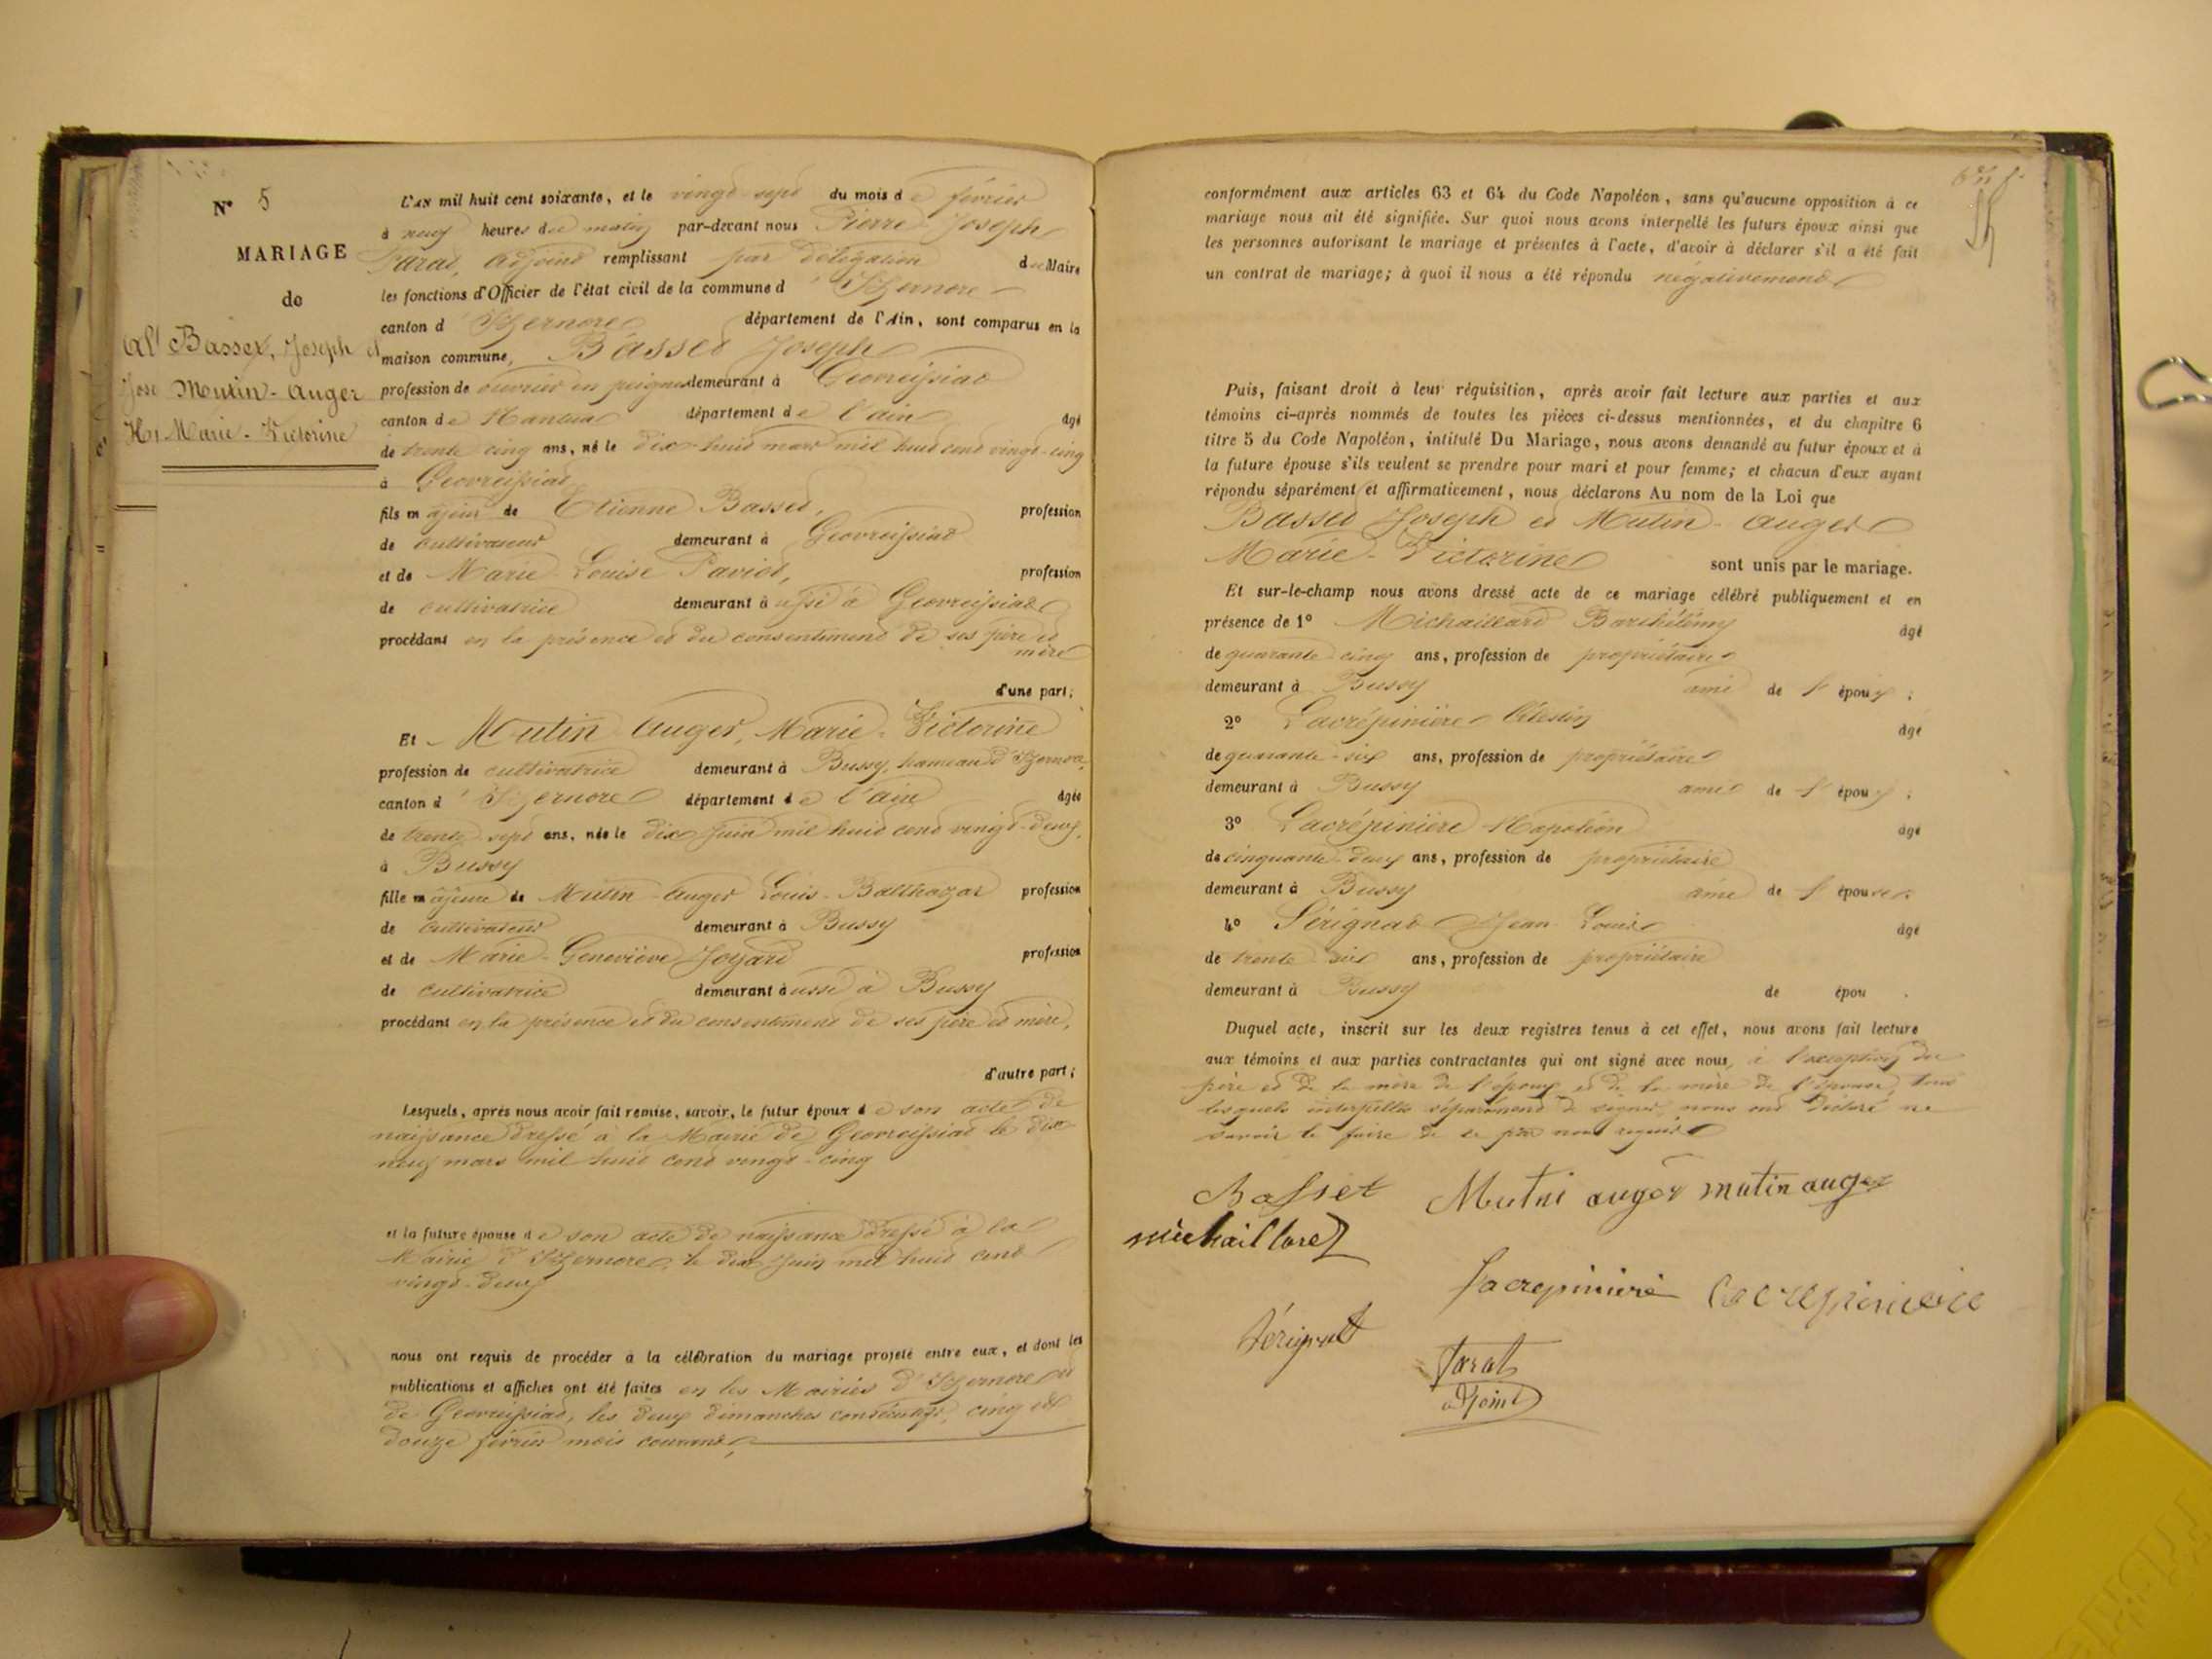 N° 5
MARIAGE
de
Basset, Joseph et
Mutin-Auger
Marie-Victorine
L'AN mil huit cent soixante, et le vingt-sept du mois de février
à neuf heures du matin par-devant nous Pierre Joseph
Tarat, Adjoint remplissant par délégation du Maire
les fonctions d'Officier de l'état civil de la commune d'Izernore
canton d'Izernore département de l'Ain, sont comparus en la
maison commune, Basset Joseph
profession de ouvrier en peignes demeurant à Géovreissiat
canton de Nantua département de l'ain âgé
de trente cinq ans, né le dix-huit mars mil huit cent vingt-cinq
à Géovreissiat
fils majeur de Etienne Basset, profession
de cultivateur demeurant à Géovreissiat
et de Marie-Louise Paviot, profession
de cultivatrice demeurant aussi à Géovreissiat
procédant en la présence et du consentement de ses père et
mère
d'une part;
Et Mutin-Auger, Marie-Victorine
profession de cultivatrice demeurant à Bussy, hameau d'Izernore,
canton d'Izernore département de l'ain âgée
de trente-sept ans, née le dix juin mil huit cent vingt-deux,
à Bussy
fille majeure de Mutin-Auger Louis-Balthazar profession
de cultivateur demeurant à Bussy
et de Marie-Geneviève Joyard profession
de cultivatrice demeurant aussi à Bussy
procédant en la présence et du consentement de ses père et mère,
d'autre part;
Lesquels, après nous avoir fait remise, savoir, le futur époux de son acte de
naissance dressé à la Mairie de Géovreissiat le dix
neuf mars mil huit cent vingt-cinq
et la future épouse de son acte de naissance dressé à la
Mairie d'Izernore, le dix juin mil huit cent
vingt-deux
nous ont requis de procéder à la célébration du mariage projeté entre eux, et dont les
publications et affiches ont été faites en les Mairies d'Izernore et
de Géovreissiat, les deux dimanches consécutifs, cinq et
douze février mois courant,
conformément aux articles 63 et 64 du Code Napoléon, sans qu'aucune opposition à ce
mariage nous ait été signifiée. Sur quoi nous avons interpellé les futurs époux ainsi que
les personnes autorisant le mariage et présentes à l'acte, d'avoir à déclarer s'il a été fait
un contrat de mariage; à quoi il nous a été répondu négativement
Puis, faisant droit à leur réquisition, après avoir fait lecture aux parties et aux
témoins ci-après nommés de toutes les pièces ci-dessus mentionnées, et du chapitre 6
titre 5 du Code Napoléon, intitulé Du Mariage, nous avons demandé au futur époux et à
la future épouse s'ils veulent se prendre pour mari et pour femme; et chacun d'eux ayant
répondu séparément et affirmativement, nous déclarons Au nom de la Loi que
Basset Joseph et Mutin-Auger
Marie-Victorine sont unis par le mariage.
Et sur-le-champ nous avons dressé acte de ce mariage célébré publiquement et en
présence de 1° Michaillard Barthélémy âgé
de quarante cinq ans, profession de propriétaire
demeurant à Bussy ami de l'époux;
2° Lacrépinière Célestin âgé
de quarante-six ans, profession de propriétaire
demeurant à Bussy ami de l'époux;
3° Lacrépinière Napoléon âgé
de cinquante-deux ans, profession de propriétaire
demeurant à Bussy ami de l'épouse;
4° Sérignat Jean-Louis âgé
de trente six ans, profession de propriétaire
demeurant à Bussy de épou .
Duquel acte, inscrit sur les deux registres tenus à cet effet, nous avons fait lecture
aux témoins et aux parties contractantes qui ont signé avec nous, à l'exception du
père et de la mère de l'époux et de la mère de l'épouse, tous
lesquels interpellés séparément de signer, nous ont déclaré ne
savoir le faire de ce par nous requis
Basset Mutin auger mutin auger
michaillard
Lacrepiniere Lacrepiniere
Sérignat
Tarat
adjoint